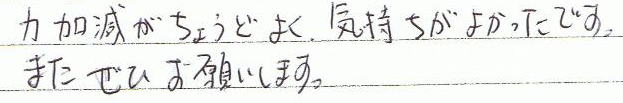 力加減がちょうどよく、気持ちがよかったです。
またぜひお願いします。